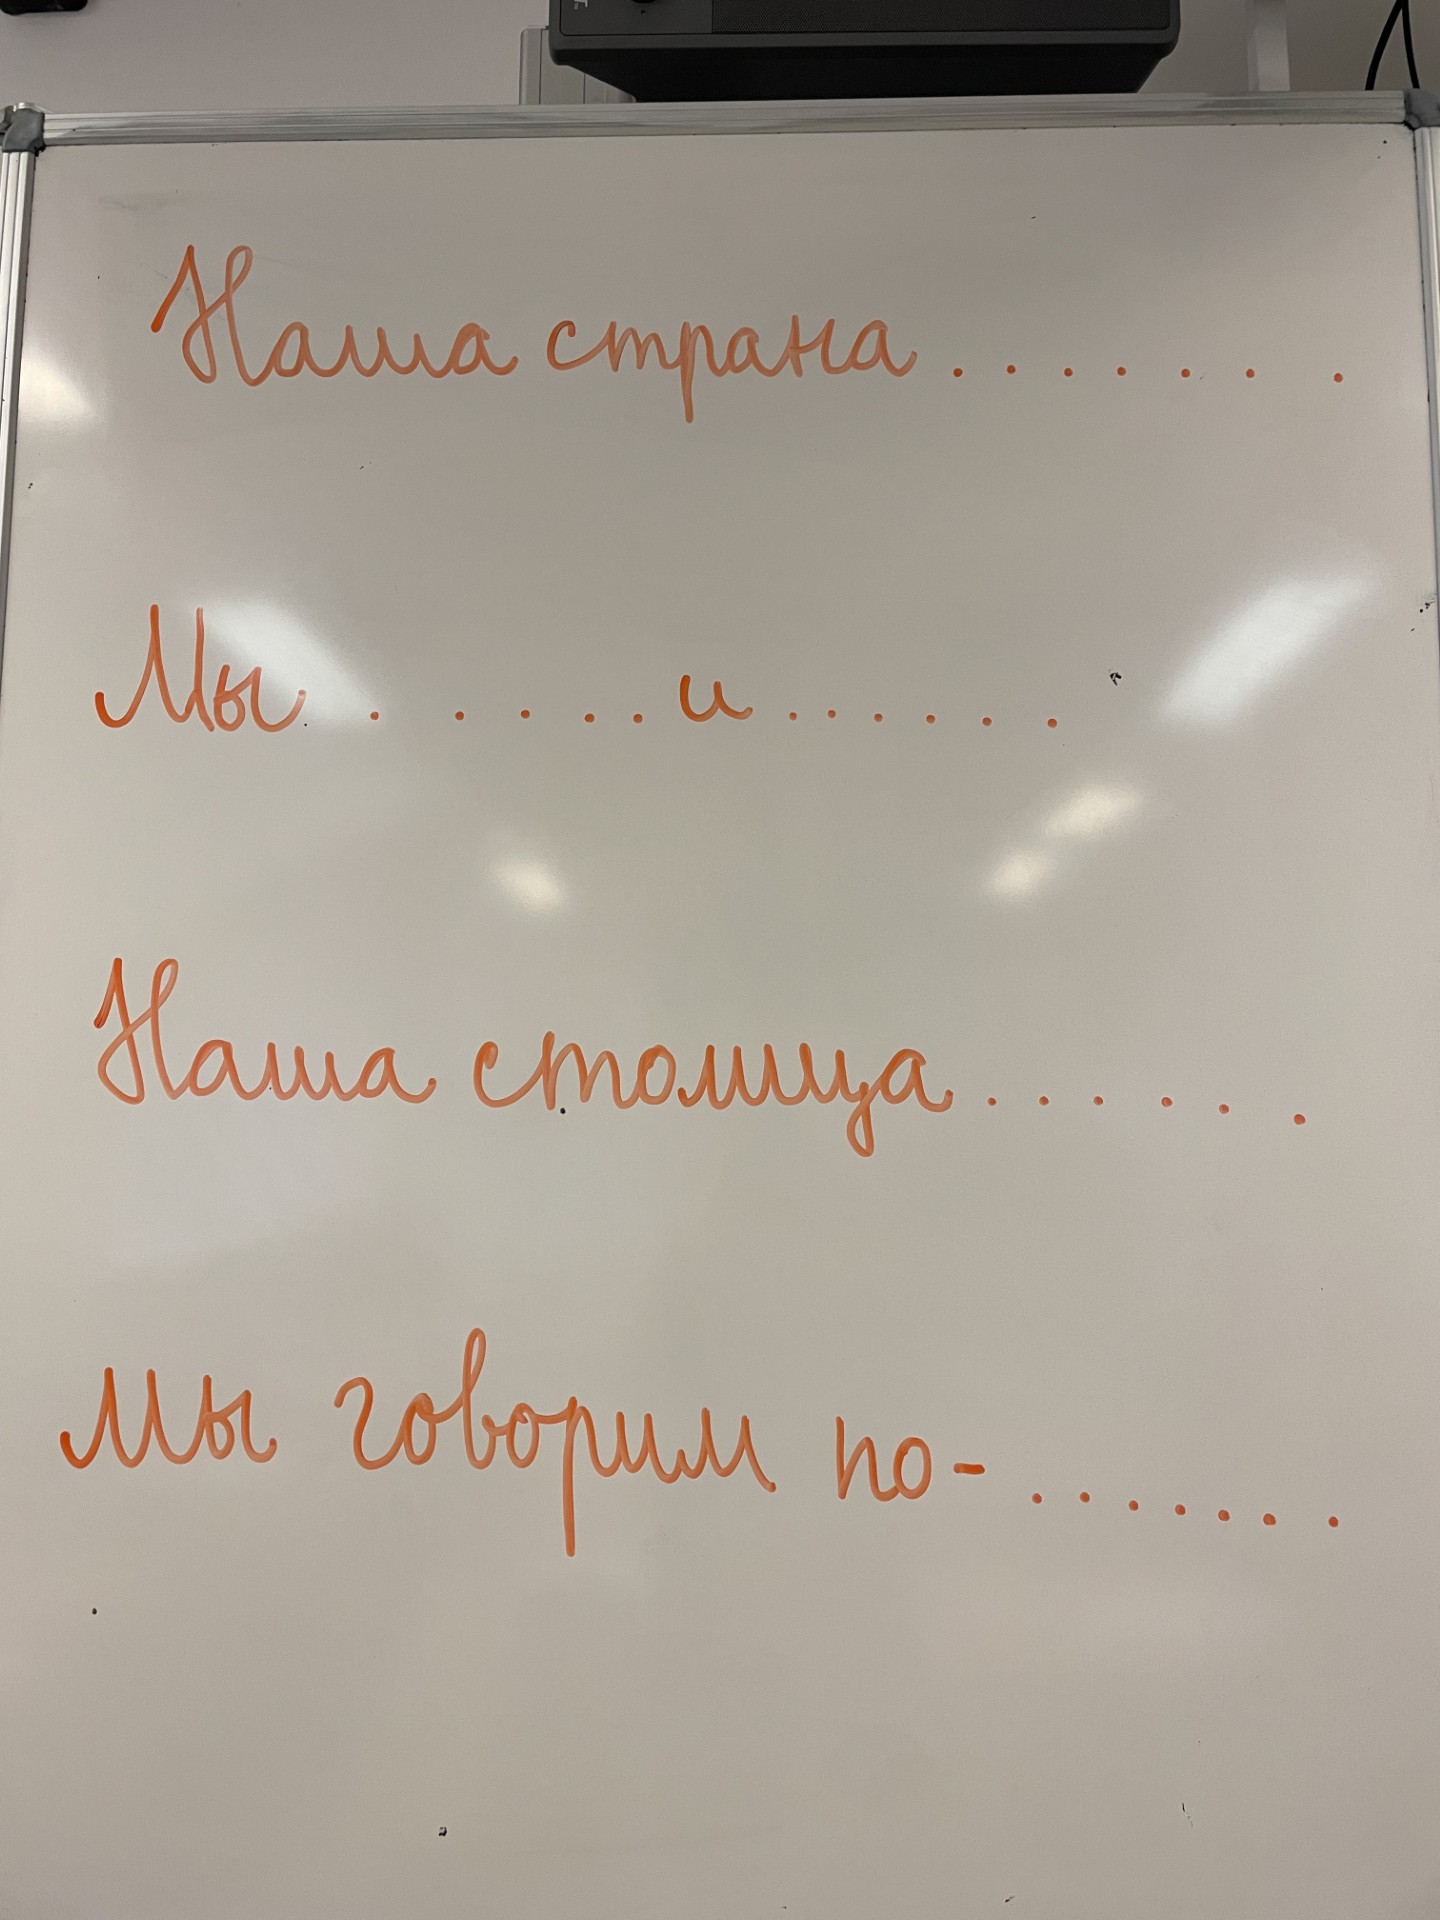 Наша страна . . . . . . .
Мы . . . . . и . . . . . .
Наша столица . . . . . .
Мы говорим по- . . . . . . .